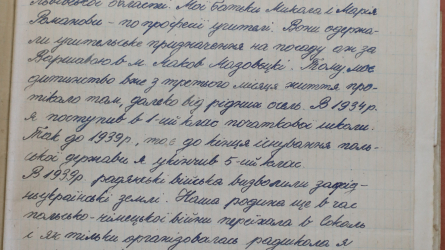 Львівської області. Мої батьки Микола і Марія
Романови - по професії учителі. Вони одержа-
ли учительське призначення на посаду аж за
Варшавою в м. Маков Мазовецкі. Тому моє
дитинство вже з третього місяця життя про-
тікало там, далеко від рідних осель. В 1934 р.
я поступив в 1-ий клас початкової школи.
Так до 1939 р, то є до кінця існування поль-
ської держави я укінчив 5-ий клас.
В 1939 р радянські війська визволили захід-
ньоукраїнські землі. Наша родина ще в час
польсько-німецької війни переїхала в Сокаль
і як тільки організовалась радшкола я